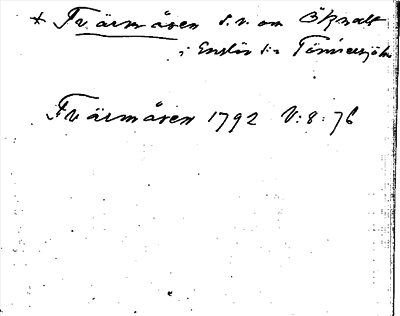 * Tvärmåren s.v. om Öknalt
i Enslöv s:n Tönnersjö h
Tvärmåren 1792 V:8:76